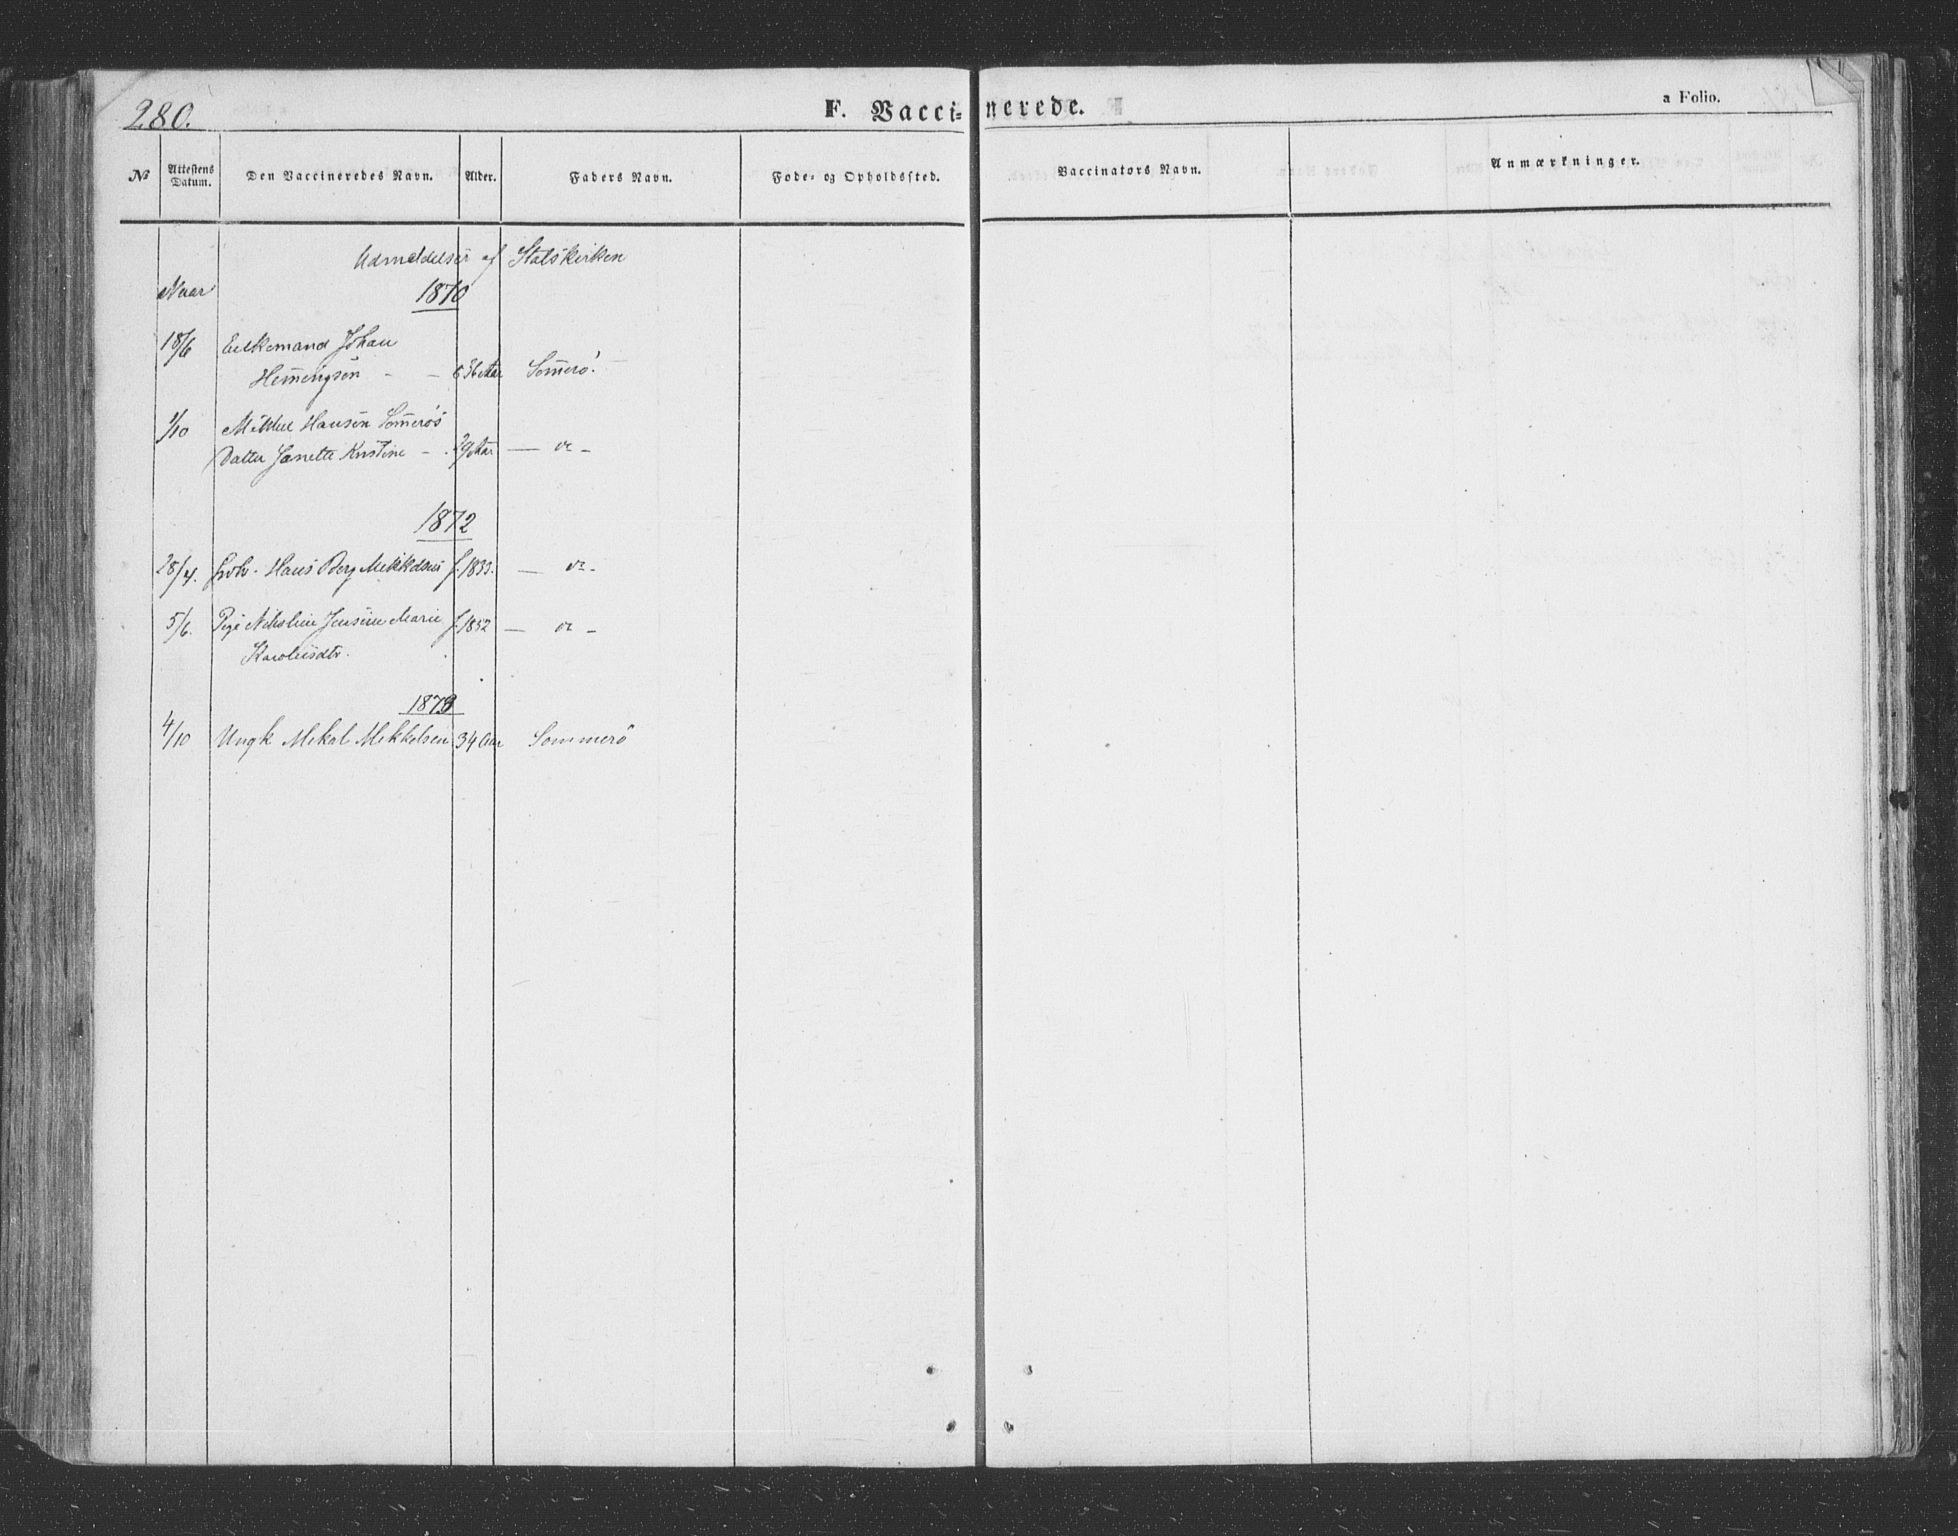 280.
F. Vaccinerede.
a Folio.
№ Attestens Datum. Den Vaccineredes Navn. Alder. Faders Navn. Føde- og Opholdssted. Vaccinators Navn. Anmærkninger.
Udmeldelser af Statskirken
Naar 1870
18/6 Enkemand Johan
Hemmingsen - - 56 Aar Somerö.
1/10 Mikkel Hansen Somerös
Datter Janette Kristine - . 29 Aar — " —
1872
28/4. Hans Berg Mikkelsen f. 1833. — " —
5/6. Pige Nikoline Jensine Marie f. 1852 — " —
Karolusdtr.
1873
4/10 Ungk Mikal Mikkelsen 34 Aar Sommerö